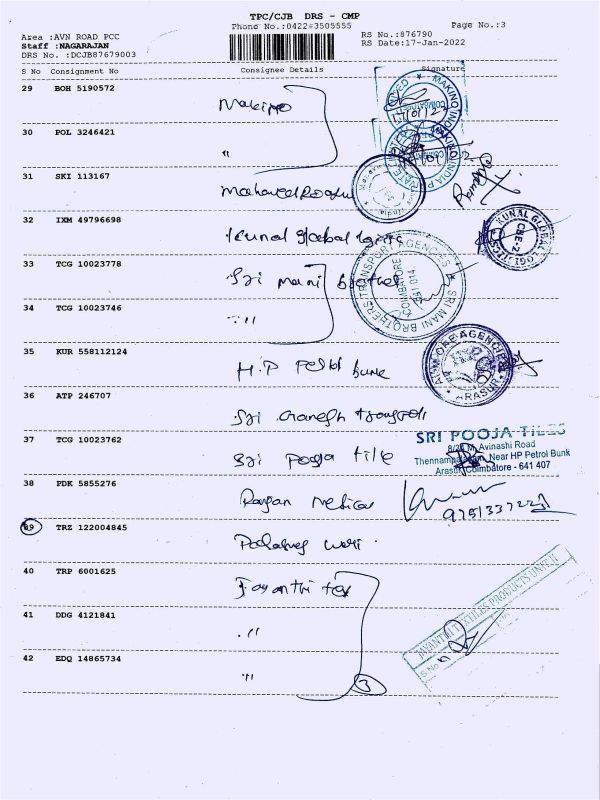 TPC/CJB DRS - CMP
Phone No.:0422#3505555
Page No.:3
Area :AVN ROAD PCC
RS No.:876790
Staff :NAGARAJAN
RS Date:17-Jan-2022
DRS No. :DCJB87679003
S No Consignment No Consignee Details Signature
29 BOH 5190572 Makino
30 POL 3246421 "
31 SKI 113167
32 IXM 49796698 Kunal global
33 TCG 10023778 Sri mani brother
34 TCG 10023746 "
35 KUR 558112124 H.P Petrol bunk
36 ATP 246707 Sri Ganesh
37 TCG 10023762 Sri Pooja tile
38 PDK 5855276 Medical
39 TRZ 122004845
40 TRP 6001625 Jayanthi tex
41 DDG 4121841 "
42 EDQ 14865734 "
3
17/01/22
MAKINO INDIA PRIVATE
COIMBATORE
KUNAL GLOBAL LOGISTICS
CBE-2
SRI MANI BROTHERS TRANSPORT AGENCIES
COIMBATORE
641 014
AGENCIES
ARASUR
SRI POOJA TILES
Avinashi Road
Near HP Petrol Bunk
Arasur, Coimbatore - 641 407
JAYANTHI TEXTILES PRODUCTS UNIT-II
S.No